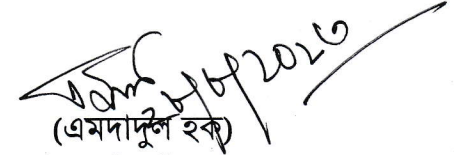 ৮/৮/২০২৩
(এমদাদুল হক)